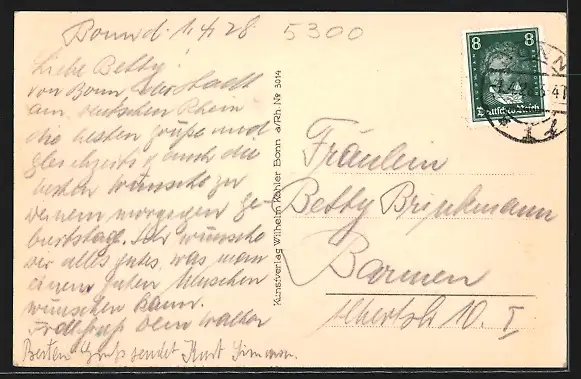 Bonn d. 1.4.28
5300
Liebe Betty!
von Bonn der Stadt
am deutschen Rhein
die besten Grüße und
gleichzeitig auch die
besten Wünsche zu
deinem morgigen Ge-
burtstage. Ich wünsche
dir alles gutes, was man
einem guten Menschen
wünschen kann.
dein Walter
Besten Gruß sendet Kurt
Kunstverlag Wilhelm Köhler Bonn a/Rh. No 3014
8 8
Deutsches Reich
Fräulein
Betty Brinkmann
Barmen
Albertstr 10. I